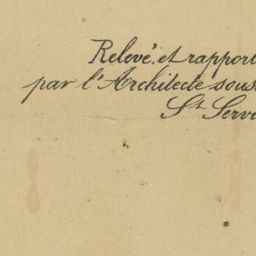 Relevé et rapport
par l'Architecte sous
St Serv